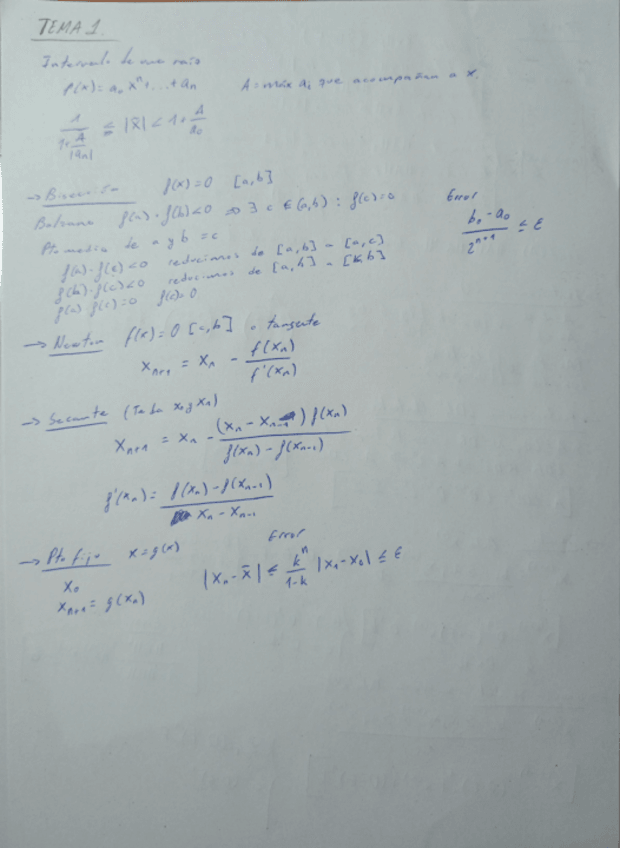 TEMA 1
Intervalo de una raíz
P(x) = a₀ xⁿ + ... + aₙ    A = máx aᵢ que acompañan a x.
1/(1+A/|aₙ|) ≤ |x̄| < 1 + A/a₀
→ Bisección    f(x)=0    [a,b]
Bolzano    f(a)·f(b)<0 => ∃ c ∈ (a,b) : f(c)=0    Error
Pto medio de a y b = c    (bₙ - a₀)/2ⁿ⁺¹ ≤ ε
f(a)·f(c)<0    reducimos de [a,b] - [a,c]
f(b)·f(c)<0    reducimos de [a,b] - [c,b]
f(a)·f(c)=0    f(c)=0
→ Newton    f(x)=0 [a,b] o tangente
xₙ₊₁ = xₙ - f(xₙ)/f'(xₙ)
→ Secante (x₀ y x₁)
xₙ₊₁ = xₙ - (xₙ - xₙ₋₁) f(xₙ)/(f(xₙ) - f(xₙ₋₁))
f'(xₙ) = (f(xₙ) - f(xₙ₋₁))/(xₙ - xₙ₋₁)
→ Pto fijo    x = g(x)    Error
x₀    |xₙ - x̄| ≤ kⁿ/(1-k) |x₁ - x₀| ≤ ε
xₙ₊₁ = g(xₙ)